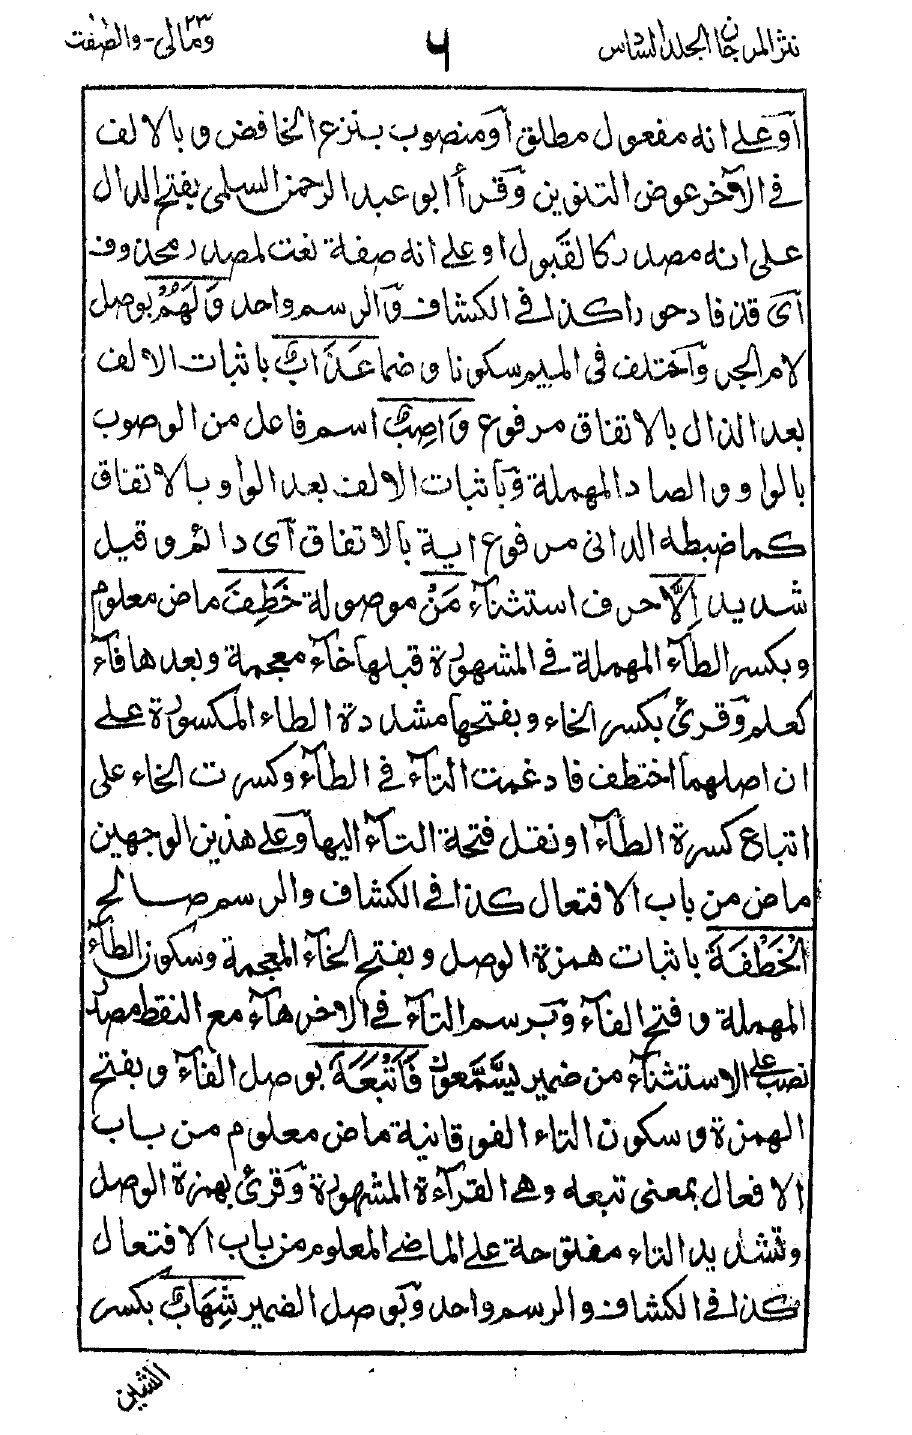 نثر المرجان الجلد السادس
٦
ومالی ۲۳ - والصّفت
اَو علے انه مفعول مطلق اَو منصوب بنزع الخافض و بالالف
فے الآخر عوض التنوين وَقرأ ابو عبد الرحمن السلمی بفتح الدال
علی انه مصدر كالقبول او علے انه صفة نعت لمصدر محذوف
اَی قذفا دحورا كذا فے الكشاف وَالرسم واحد وَلَهُمْ بوصل
لام الجر وَاختلف فی الميم سكونا و ضما عَذَابٌ باثبات الالف
بعد الذال بالاتفاق مرفوع وَاصِبٌ اسم فاعل من الوصوب
بالواو و الصاد المهملة وَباثبات الالف بعد الواو بالاتفاق
كما ضبطه الدانی مرفوع اية بالاتفاق اَی دائم و قيل
شديد اِلَّا حرف استثنآء مَنْ موصولة خَطِفَ ماض معلوم
و بكسر الطآء المهملة فے المشهورة قبلها خآء معجمة و بعدها فآء
كعلم وَقرئ بكسر الخاء و بفتحها مشددة الطاء المكسورة علے
ان اصلهما اختطف فادغمت التآء فے الطآء و كسرت الخاء علی
اتباع كسرة الطآء او نقل فتحة التآء اليها وَعلے هذين الوجهين
ماض من باب الافتعال كذا فے الكشاف والرسم صالح
الْخَطْفَةَ باثبات همزة الوصل و بفتح الخآء المعجمة و سكون الطآء
المهملة و فتح الفآء وَبرسم التآء فے الاخر هآء مع النقط مصدر
نصب علے الاستثنآء من ضمير يَسَّمَّعون فَاَتْبَعَهٗ بوصل الفآء و بفتح
الهمزة و سكون التاء الفوقانية ماض معلوم من باب
الافعال بمعنی تبعه و هے القرآءة المشهورة وَقرئ بهمزة الوصل
و تشديد التاء مفتوحة علے الماضے المعلوم من باب الافتعال
كذا فے الكشاف و الرسم واحد وَبوصل الضمير شِهَابٌ بكسر
الشين